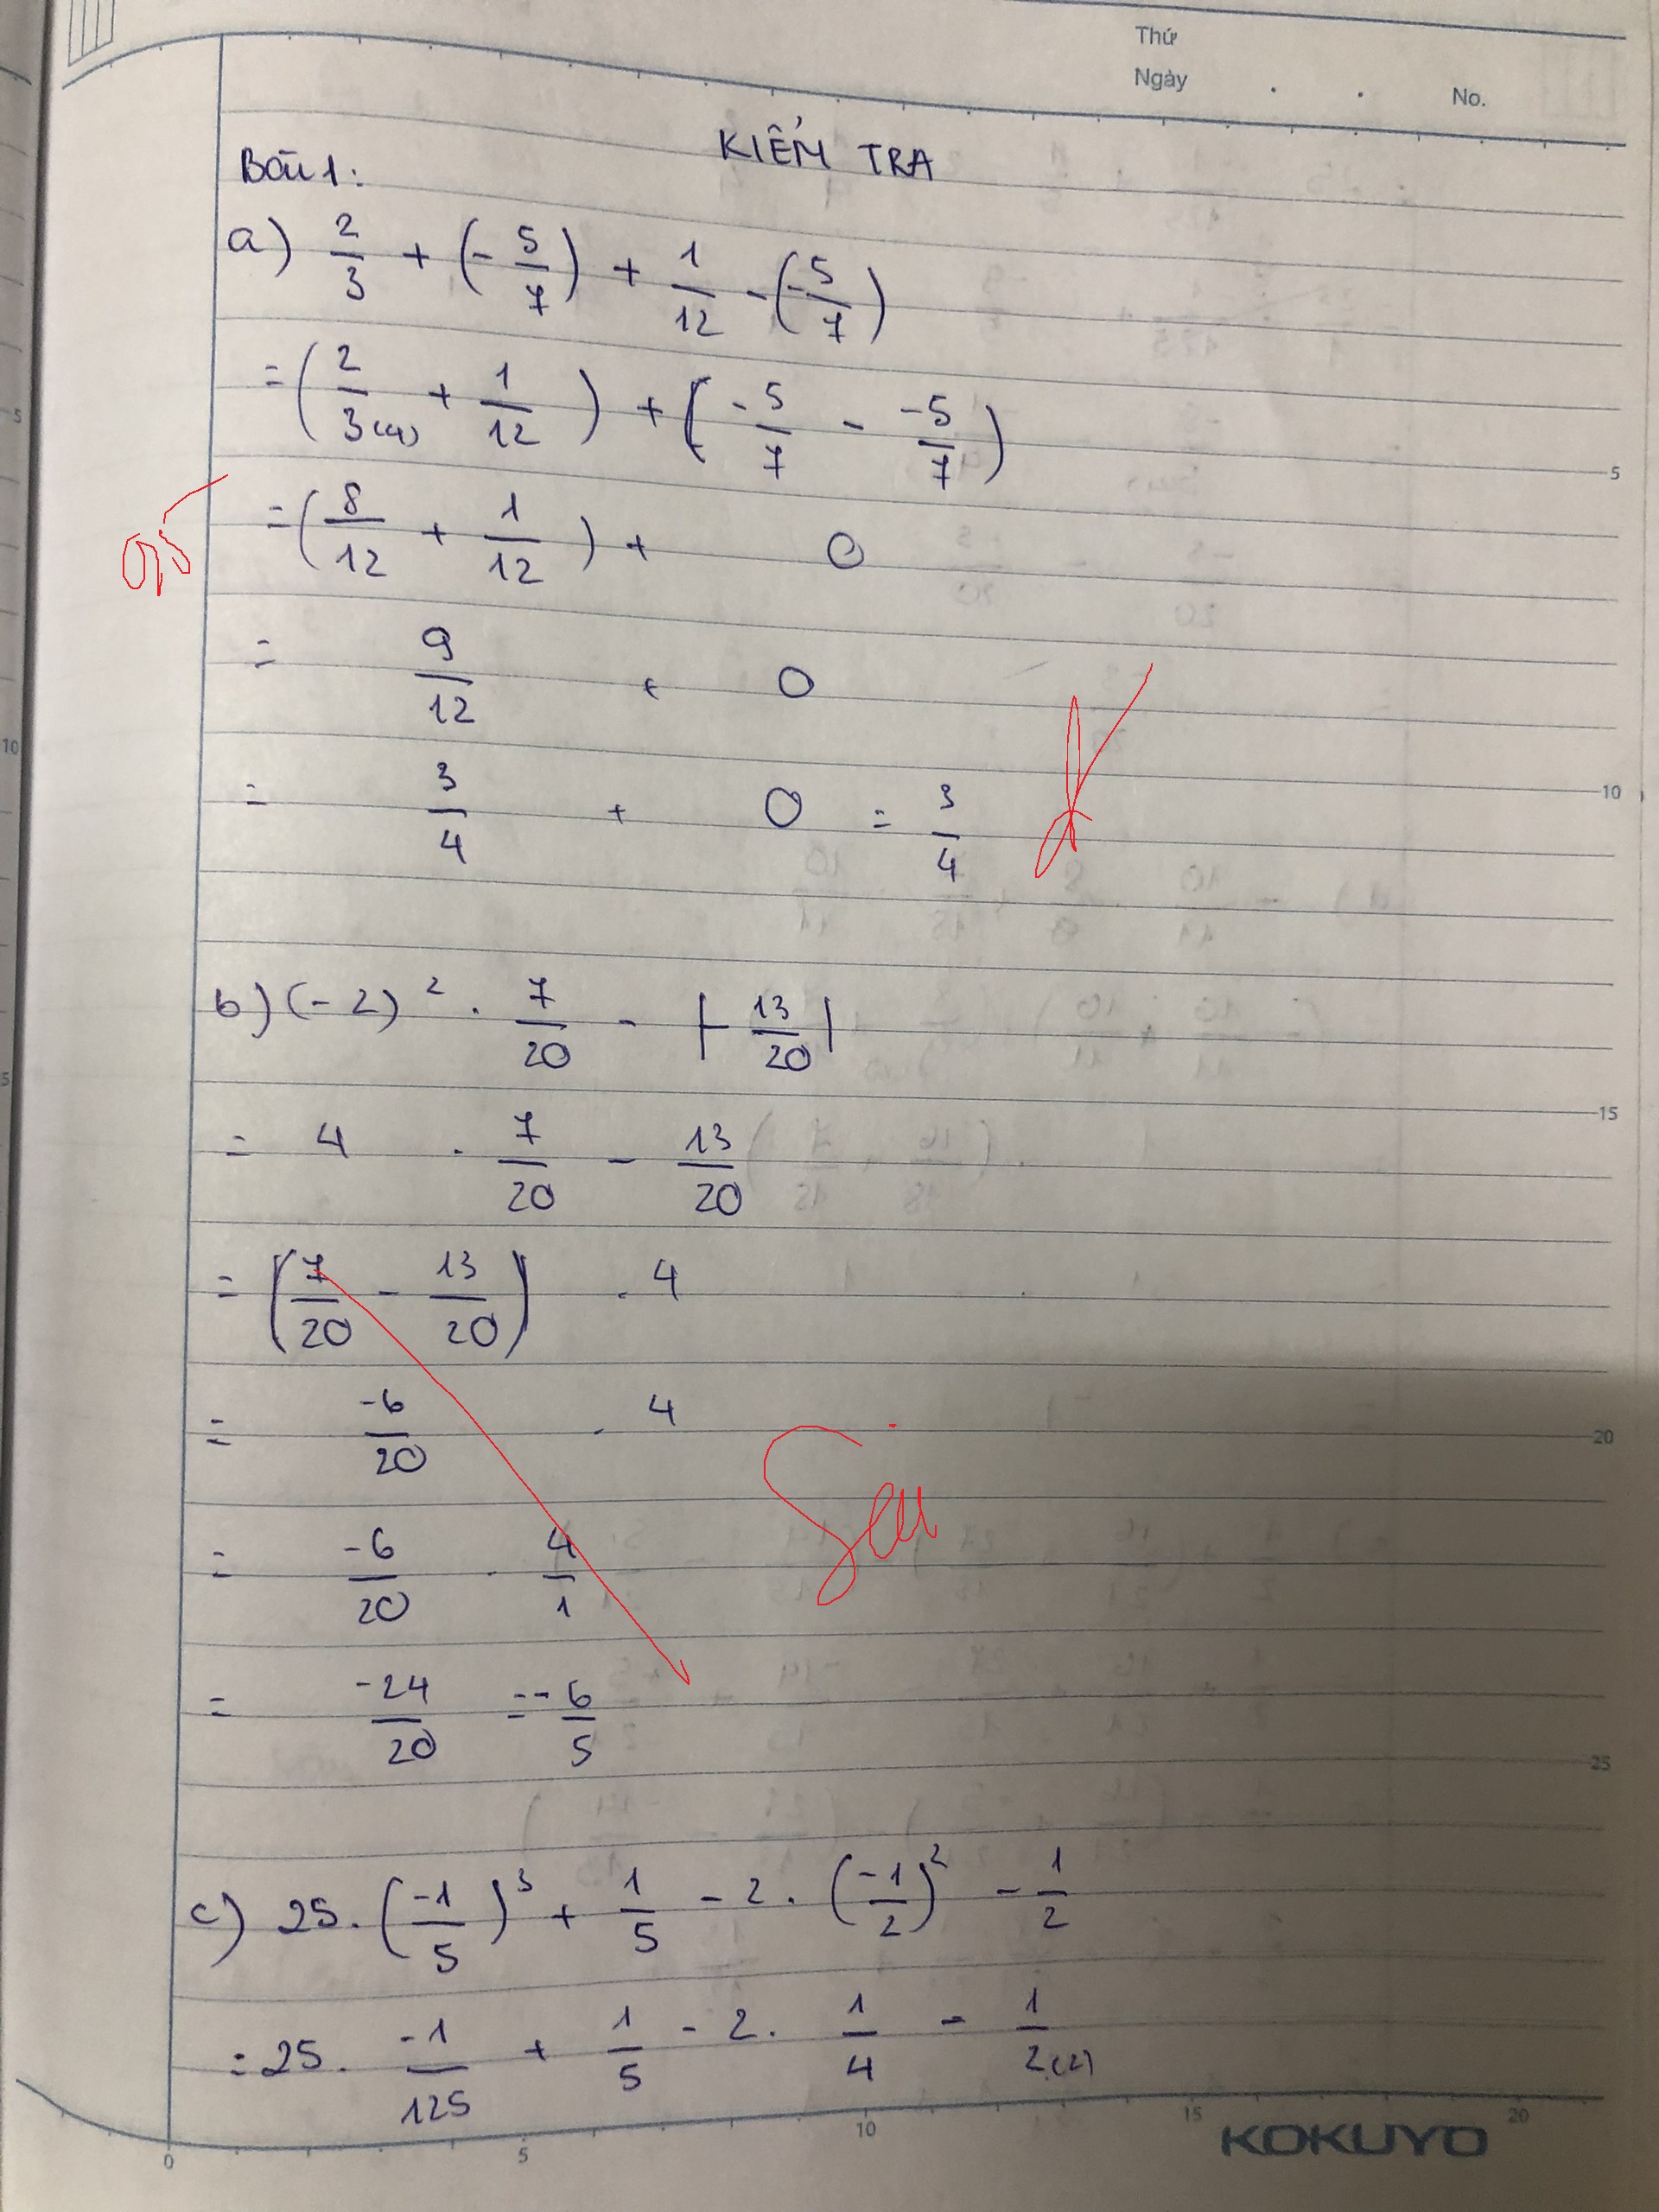 Thứ
Ngày . . No.
KIỂM TRA
Bài 1:
a) 2/3 + (- 5/7) + 1/12 - (-5/7)
= (2/3(4) + 1/12) + (-5/7 - -5/7)
0,5
= (8/12 + 1/12) + 0
= 9/12 + 0
= 3/4 + 0 = 3/4
b) (-2)² . 7/20 - |- 13/20|
= 4 . 7/20 - 13/20
= (7/20 - 13/20) . 4
= -6/20 . 4
Sai
= -6/20 . 4/1
= -24/20 = - 6/5
c) 25. (-1/5)³ + 1/5 - 2. (-1/2)² - 1/2
= 25. -1/125 + 1/5 - 2. 1/4 - 1/2(2)
5
10
15
20
25
0 5 10 15 20
KOKUYO